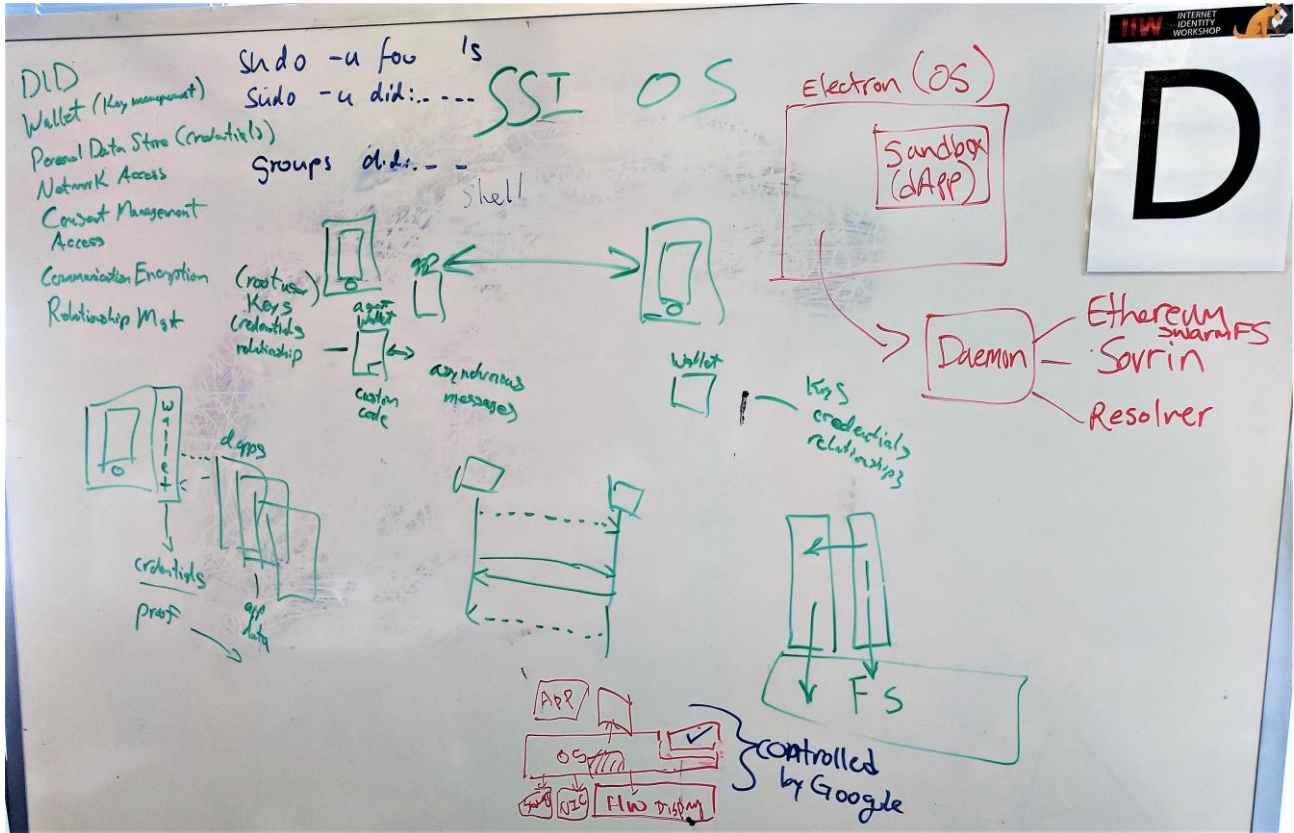 IIW INTERNET
IDENTITY
WORKSHOP
D
DID
Wallet (Key management)
Personal Data Store (credentials)
Network Access
Consent Management
Access
Communication Encryption
Relationship Mgt
sudo -u foo ls
sudo -u did:.----
groups did:. - -
SSI OS
shell
Electron (OS)
Sandbox
(dApp)
Daemon
Ethereum
swarmFS
Sovrin
Resolver
(root user)
Keys
credentials
relationship
agent
wallet
custom
code
asynchronous
messages
wallet
Keys
credentials
relationships
wallet
dapps
credentials
proof
app
data
FS
APP
OS
NIC
HW Display
controlled
by Google